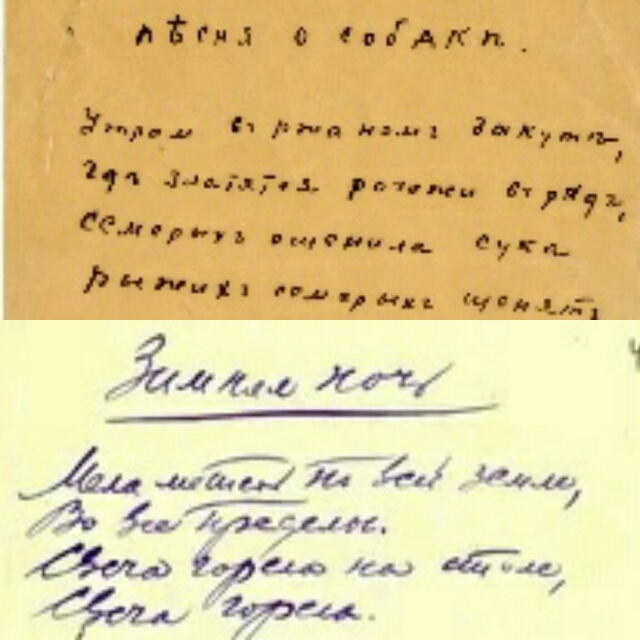 Пѣсня о собакѣ.
Утром въ ржаномъ закутѣ,
Гдѣ златятся рогожи въ рядъ,
Семерыхъ ощенила сука
Рыжихъ семерыхъ щенятъ
Зимняя ночь
Мела метель по всей земле,
Во все пределы.
Свеча горела на столе,
Свеча горела.